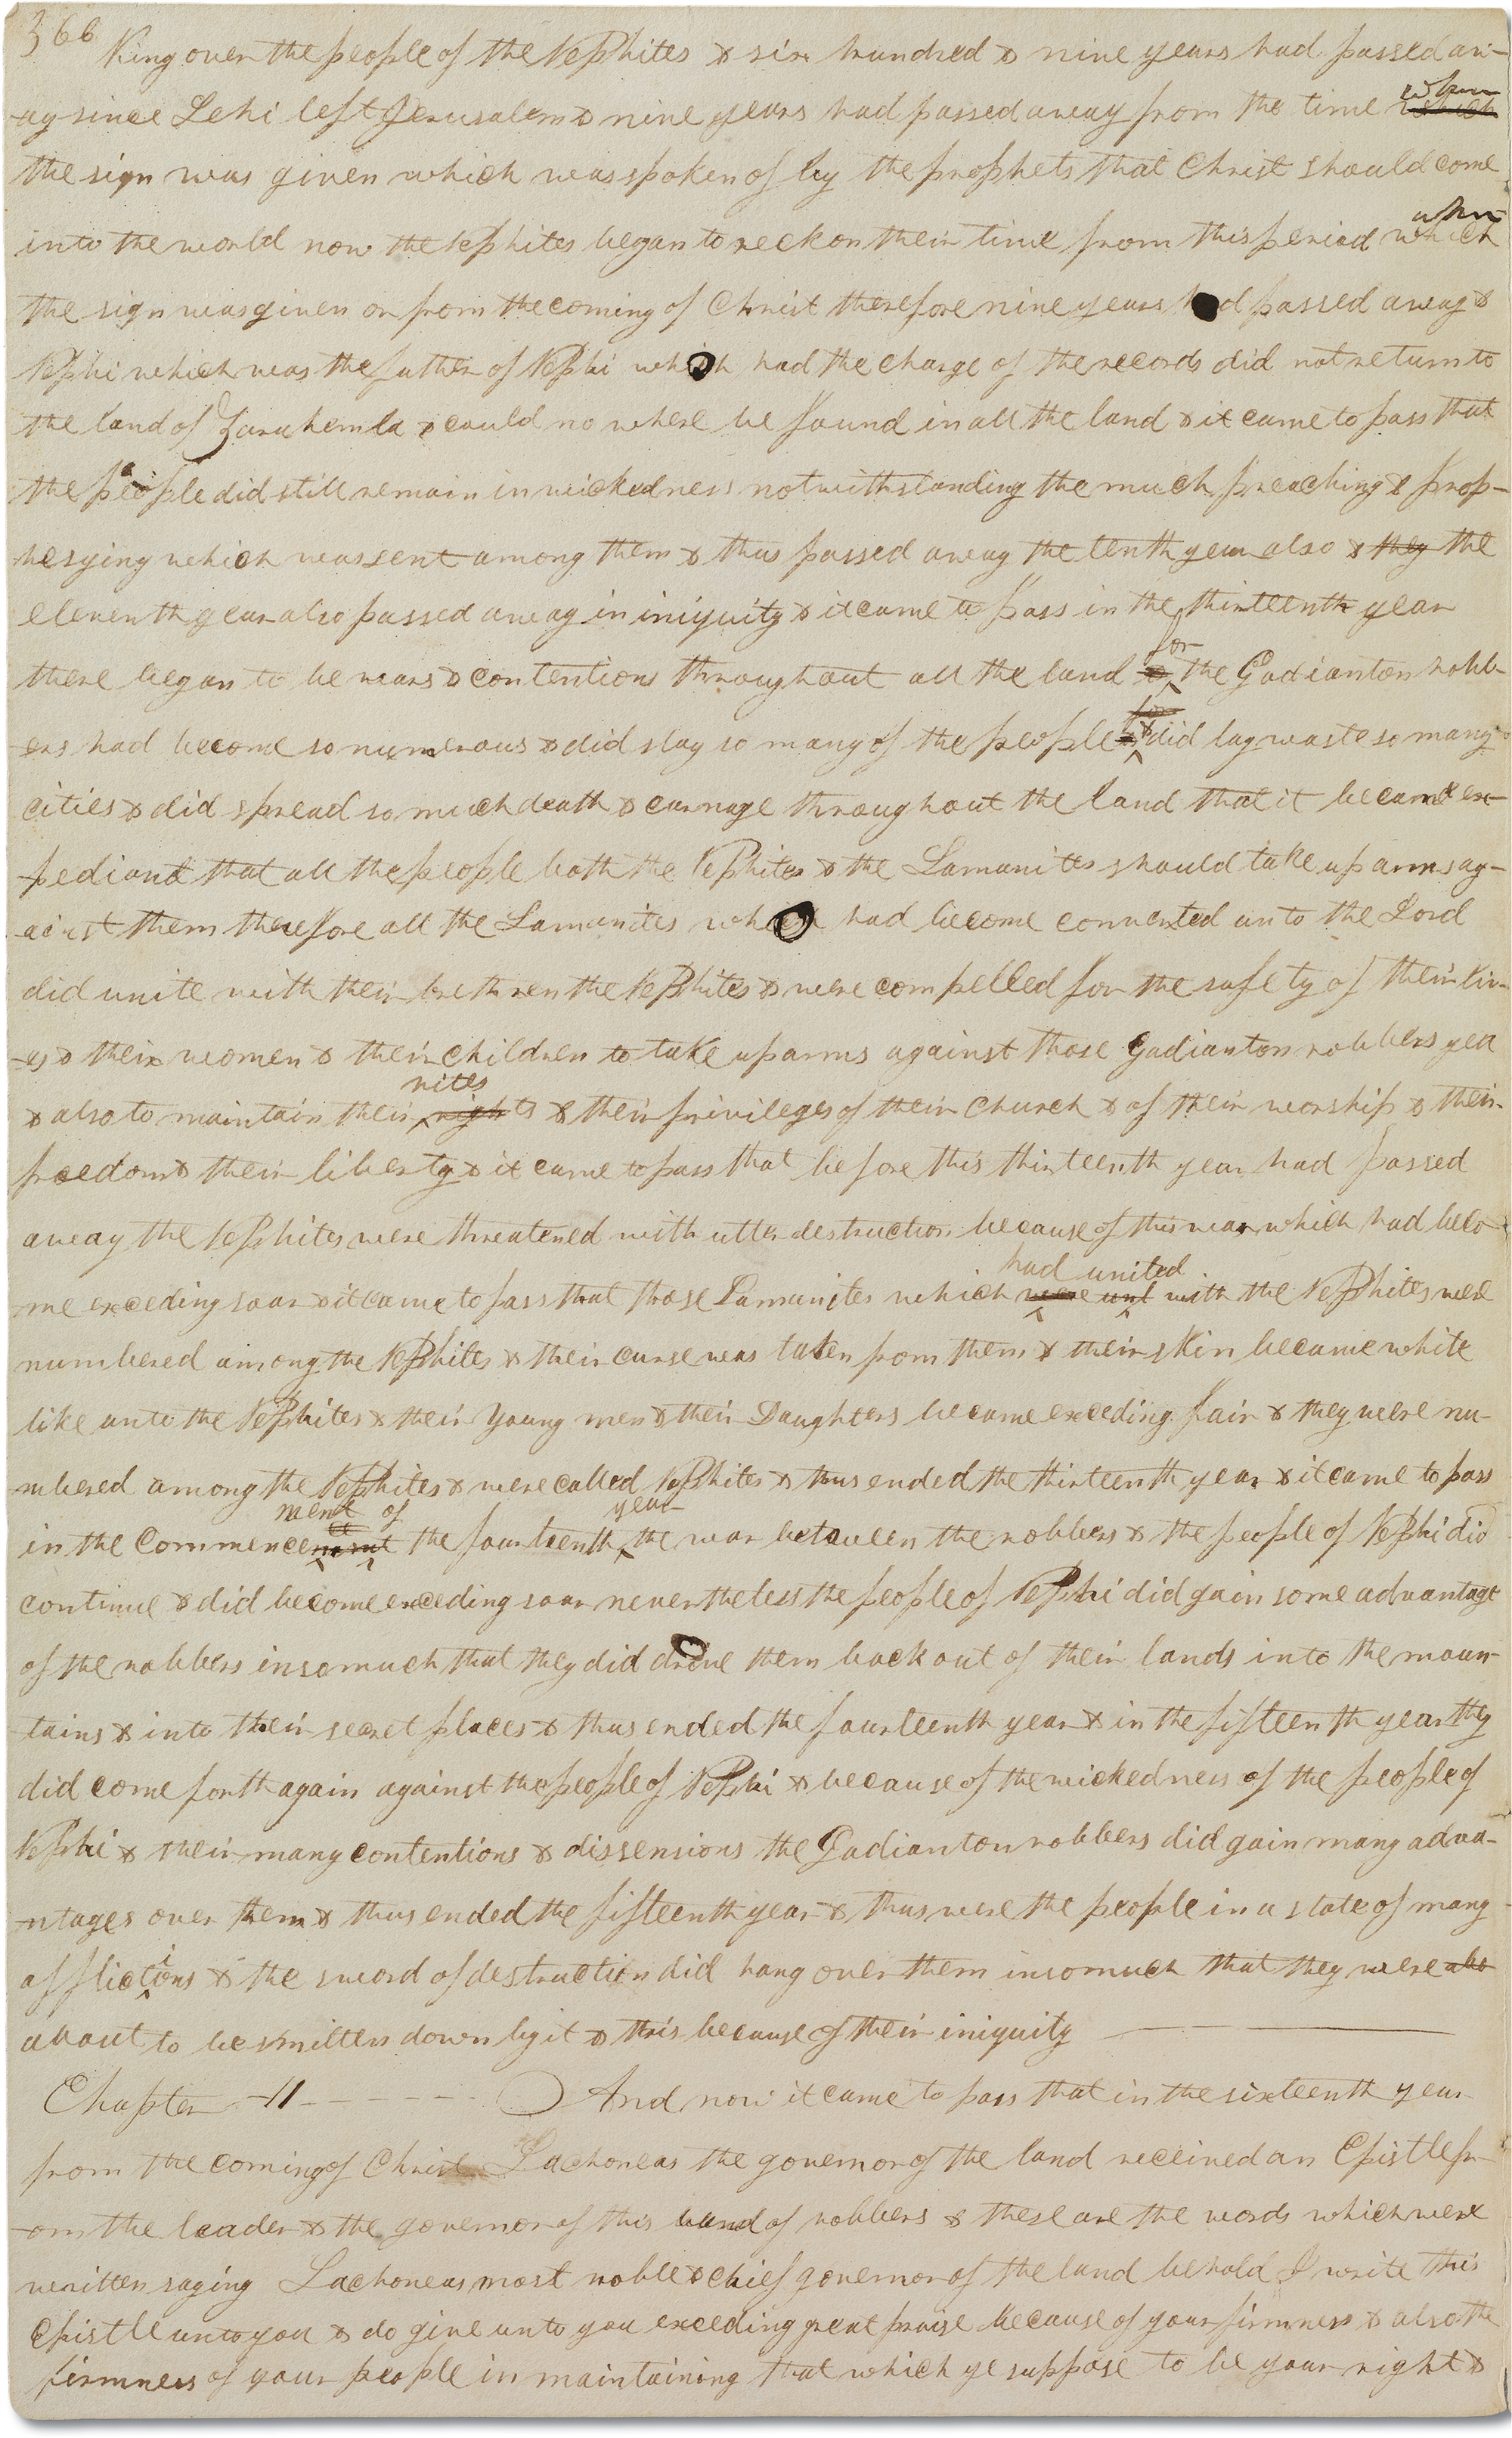 366
King over the people of the Nephites & six hundred & nine years had passed aw-
-ay since Lehi left Jerusalem & nine years had passed away from the time which when
the sign was given which was spoken of by the prophets that Christ should come
into the world now the Nephites began to reckon their time from this period which when
the sign was given or from the coming of Christ therefore nine years had passed away &
Nephi which was the father of Nephi which had the charge of the records did not return to
the land of Zarahemla & could no where be found in all the land & it came to pass that
the people did still remain in wickedness notwithstanding the much preaching & prop-
-hesying which was sent among them & thus passed away the tenth year also & they the
eleventh year also passed away in iniquity & it came to pass in the thirteenth year
there began to be wars & contentions throughout all the land & for the Gadianton robb-
-ers had become so numerous & did slay so many of the people & for & did lay waste so many
cities & did spread so much death & carnage throughout the land that it became ex-
-pediant that all the people both the Nephites & the Lamanites should take up arms ag-
-ainst them therefore all the Lamanites which had become converted unto the Lord
did unite with their brethren the Nephites & were compelled for the safety of their liv-
-es & their women & their children to take up arms against those Gadianton robbers yea
& also to maintain their rights rites & their privileges of their church & of their worship & their
freedom & their liberty & it came to pass that before this thirteenth year had passed
away the Nephites were threatened with utter destruction because of this war which had beco-
-me exceding soar & it came to pass that those Lamanites which were unt had united with the Nephites were
numbered among the Nephites & their curse was taken from them & their skin became white
like unto the Nephites & their young men & their Daughters became exceding fair & they were nu-
mbered among the Nephites & were called Nephites & thus ended the thirteenth year & it came to pass
in the commencement of the fourteenth year the war between the robbers & the people of Nephi did
continue & did become exceding soar nevertheless the people of Nephi did gain some advantage
of the robbers insomuch that they did drive them back out of their lands into the moun-
tains & into their secret places & thus ended the fourteenth year & in the fifteenth year they
did come forth again against the people of Nephi & because of the wickedness of the people of
Nephi & their many contentions & dissensions the Gadianton robbers did gain many adva-
-ntages over them & thus ended the fifteenth year & thus were the people in a state of many
afflictions & the sword of destruction did hang over them insomuch that they were abo
about to be smitten down by it & this because of their iniquity
Chapter II And now it came to pass that in the sixteenth year
from the coming of Christ Lachoneas the governor of the land received an Epistle fr-
-om the leader & the governor of this band of robbers & these are the words which were
written saying Lachoneas most noble & chief governor of the land behold I write this
Epistle unto you & do give unto you exceding great praise because of your firmness & also the
firmness of your people in maintaining that which ye suppose to be your right &